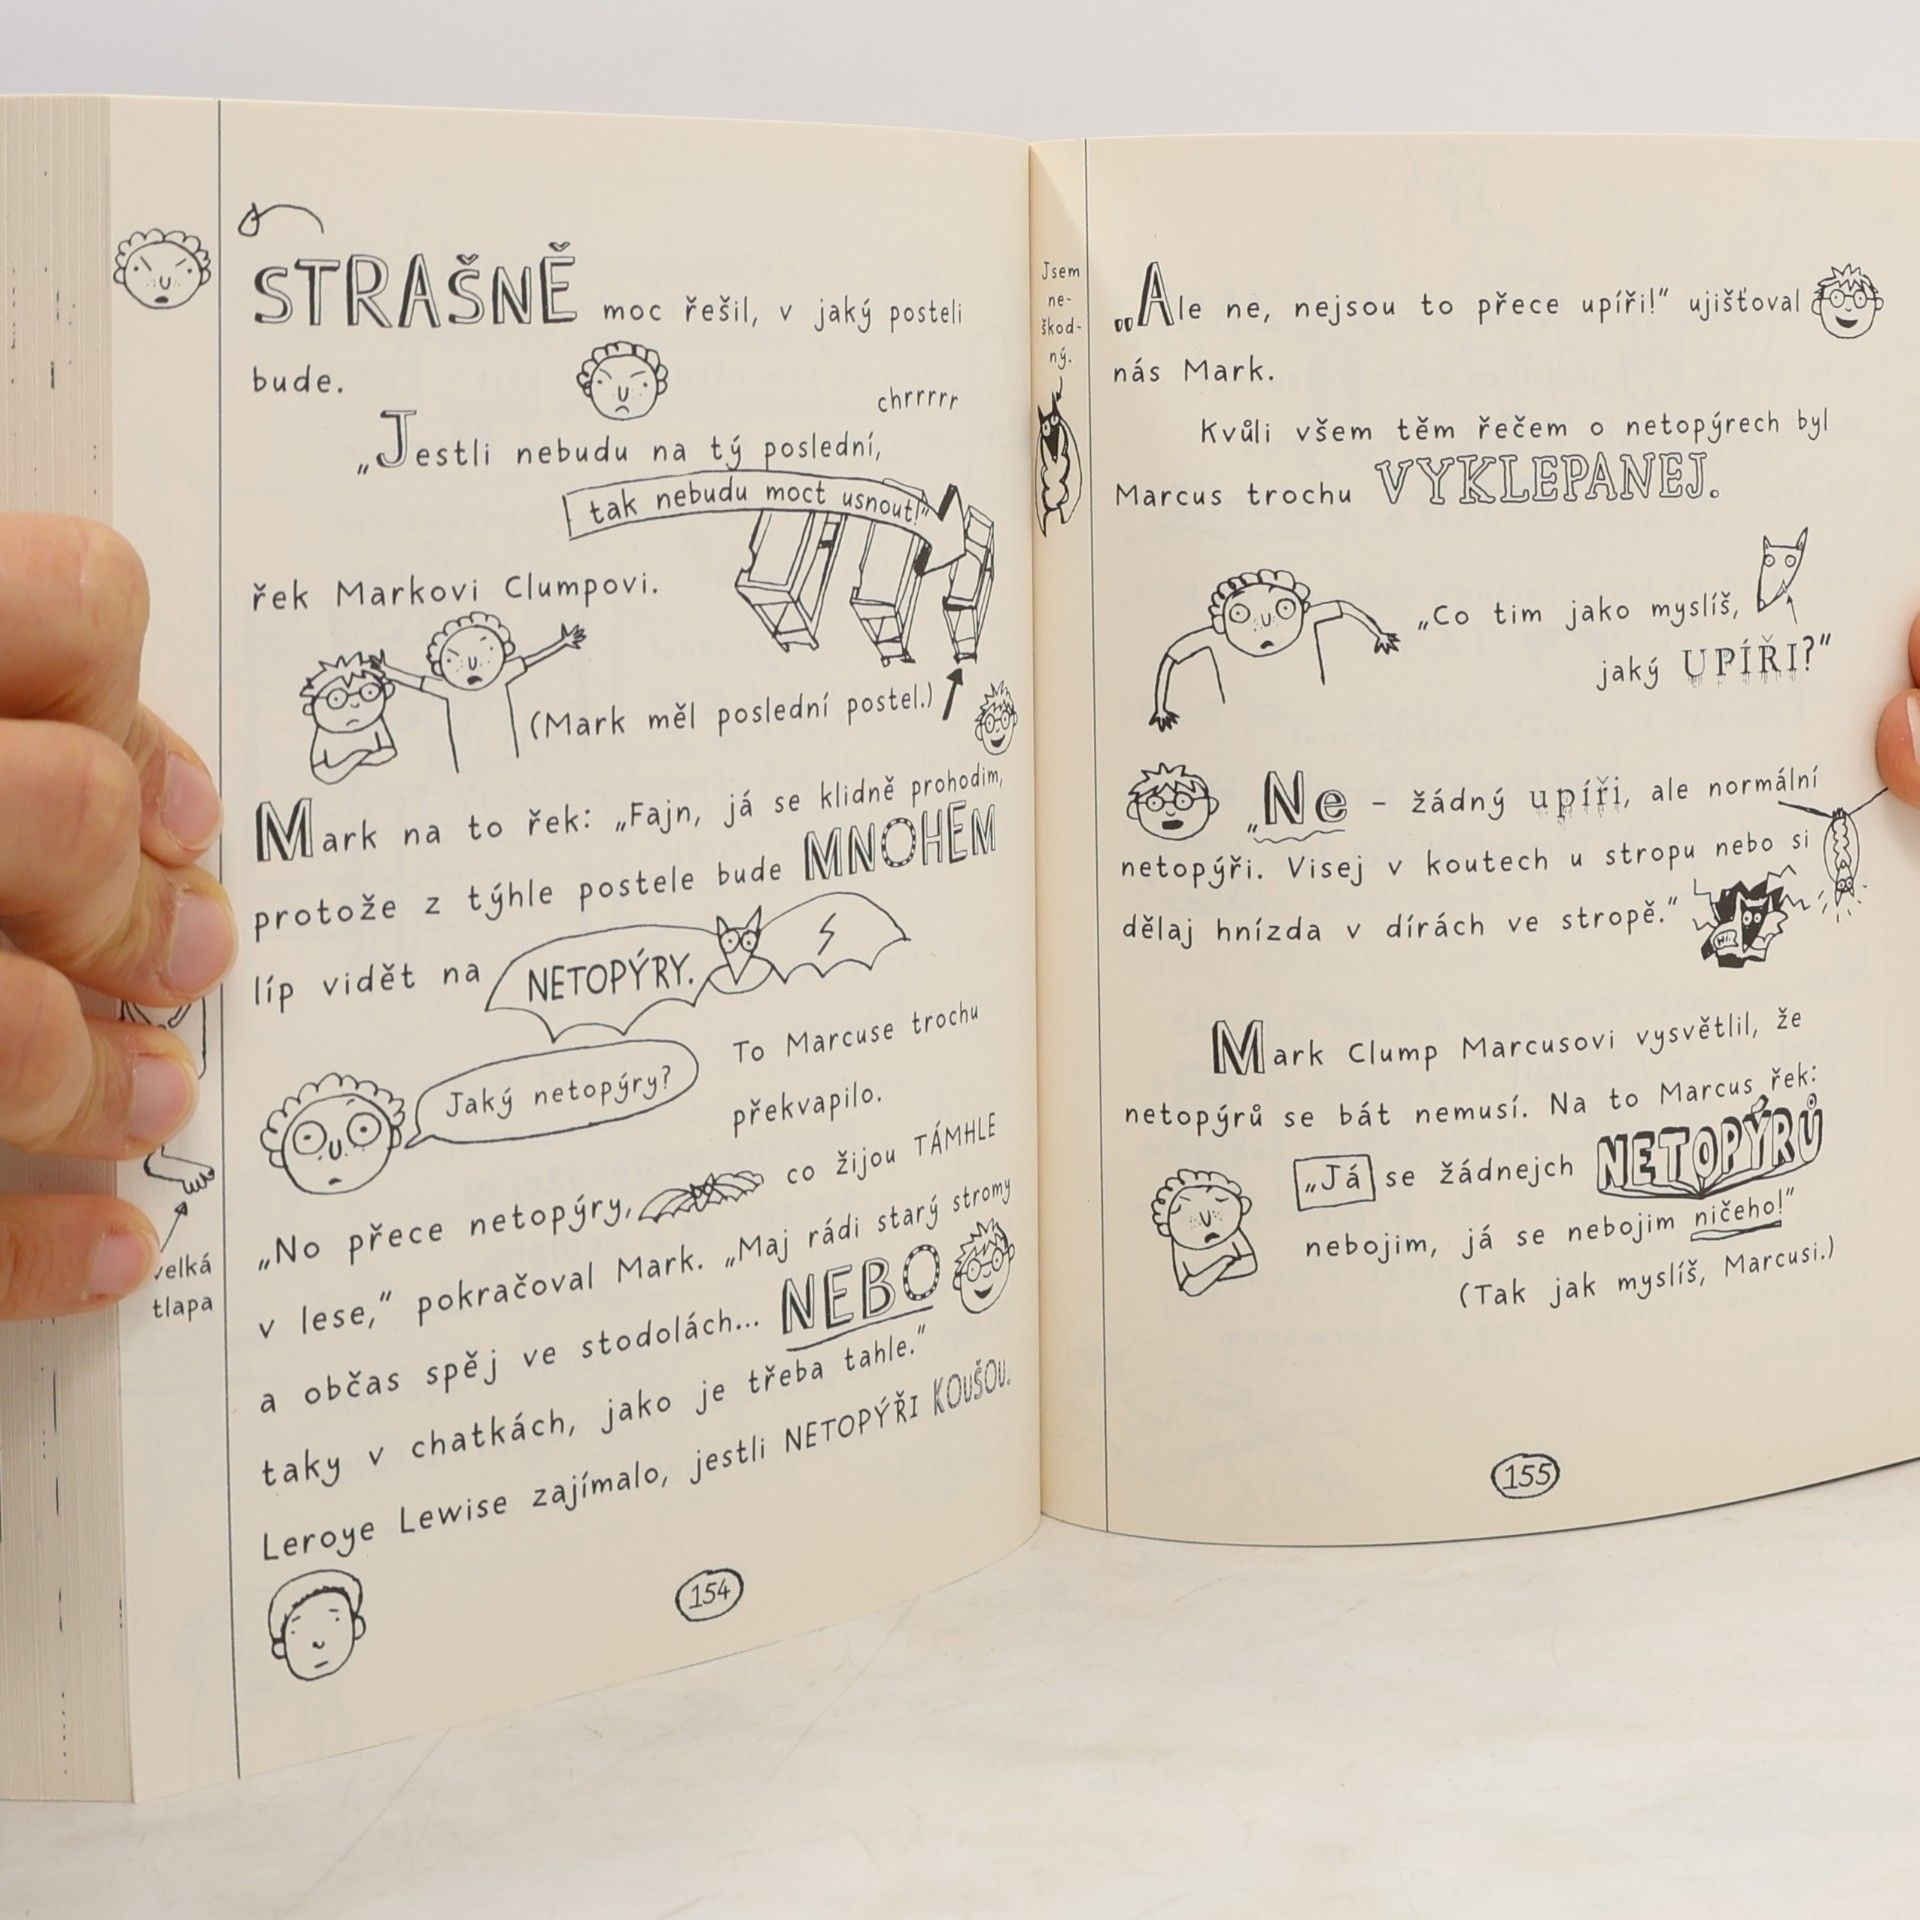 STRAŠNĚ moc řešil, v jaký posteli
bude.
chrrrrr
„Jestli nebudu na tý poslední,
tak nebudu moct usnout!“
řek Markovi Clumpovi.
(Mark měl poslední postel.)
Mark na to řek: „Fajn, já se klidně prohodim,
protože z týhle postele bude MNOHEM
líp vidět na NETOPÝRY.
Jaký netopýry?
To Marcuse trochu
překvapilo.
„No přece netopýry, co žijou TÁMHLE
v lese,“ pokračoval Mark. „Maj rádi starý stromy
a občas spěj ve stodolách... NEBO
taky v chatkách, jako je třeba tahle.“
Leroye Lewise zajímalo, jestli NETOPÝŘI KOUŠOU.
velká
tlapa
154
Jsem
ne-
škod-
ný.
„Ale ne, nejsou to přece upíři!“ ujišťoval
nás Mark.
Kvůli všem těm řečem o netopýrech byl
Marcus trochu VYKLEPANEJ.
„Co tim jako myslíš,
jaký UPÍŘI?“
„Ne – žádný upíři, ale normální
netopýři. Visej v koutech u stropu nebo si
dělaj hnízda v dírách ve stropě.“
Mark Clump Marcusovi vysvětlil, že
netopýrů se bát nemusí. Na to Marcus řek:
„Já se žádnejch NETOPÝRŮ
nebojim, já se nebojim ničeho!“
(Tak jak myslíš, Marcusi.)
155